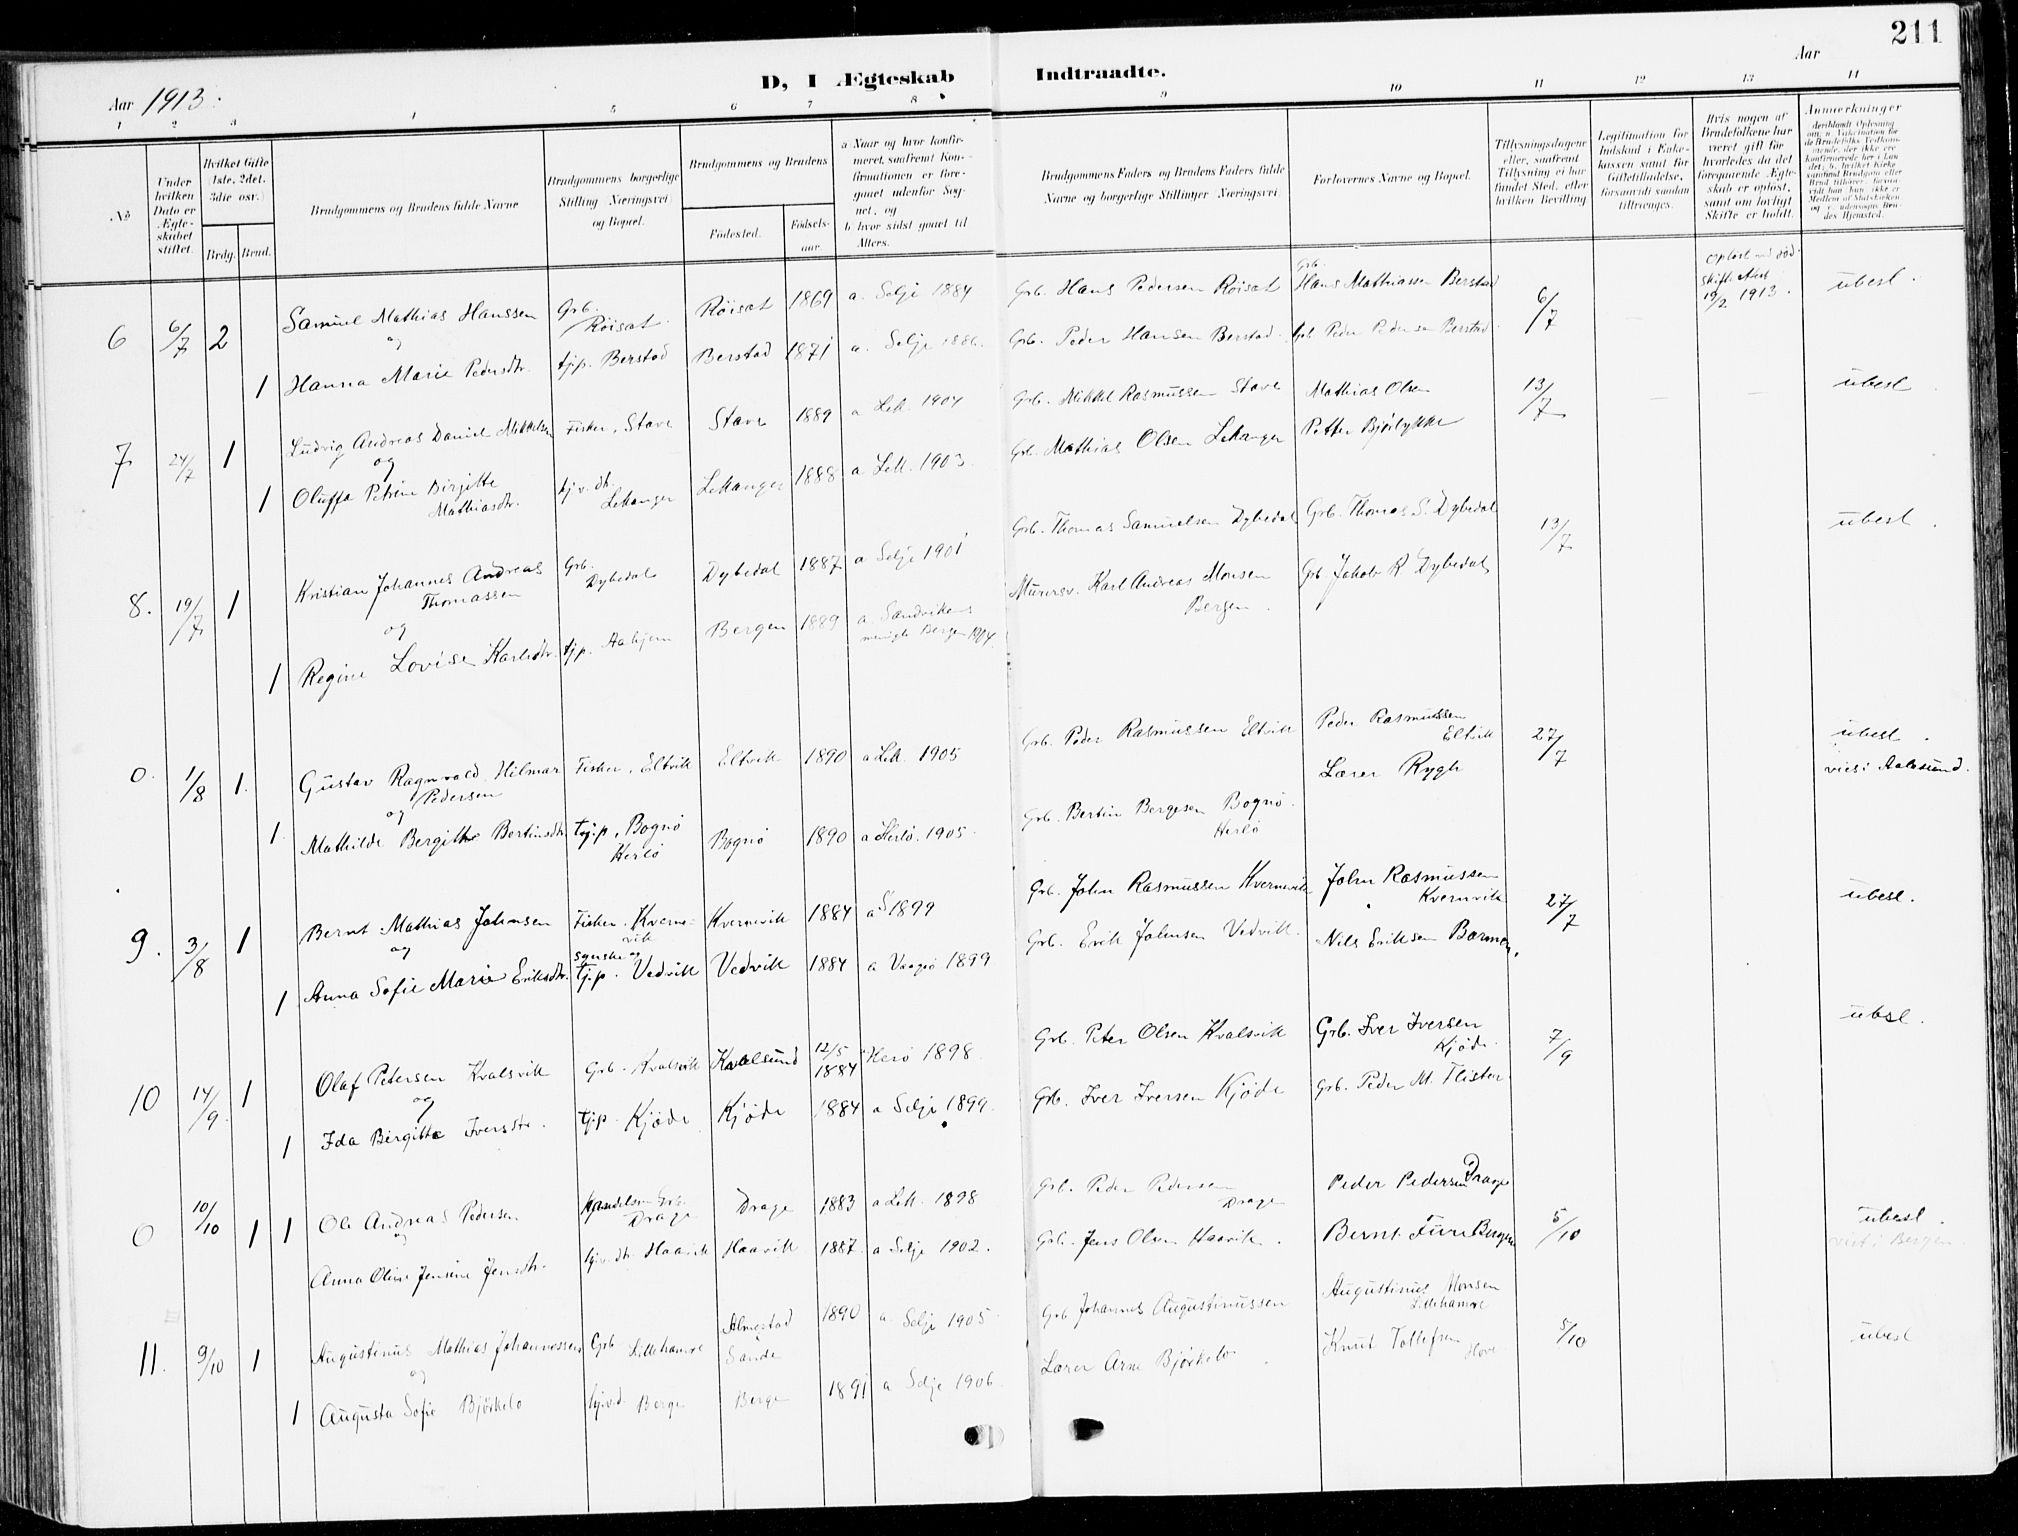 211
Aar 1913.
D, I Ægteskab Indtraadte.
Aar
1 2 3 4 5 6 7 8 9 10 11 12 13 14
No
Under hvilken Dato er Ægteskabet stiftet.
Hvilket Gifte 1ste, 2det, 3die osv.)
Brdg. Brud.
Brudgommens og Brudens fulde Navne
Brudgommens borgerlige Stilling Næringsvei og Bopæl.
Brudgommens og Brudens
Fødested. Fødsels-aar.
a Naar og hvor konfirmeret, saafremt Konfirmationen er foregaaet udenfor Sognet, og
b hvor sidst gaaet til Alters.
Brudgommens Faders og Brudens Faders fulde Navne og borgerlige Stillinger Næringsvei.
Forlovernes Navne og Bopæl.
Tillysningsdagene eller, saafremt Tillysning ei har fundet Sted, efter hvilken Bevilling
Legitimation for Indskud i Enkekassen samt for Giftetilladelse, forsaavidt saadan tiltrænges.
Hvis nogen af Brudefolkene har været gift før hvorledes da det foregaaende Ægteskab er opløst, samt om lovligt Skifte er holdt.
Anmerkninger
6 6/7 2 Samuel Mathias Hanssen Grb. Röisat Röisat 1869 a. Selje 1884 Grb. Hans Pedersen Röisat Grb. Hans Mathiassen Berstad 6/7 Opløst ved död. Skifte 19/2 1913. ubesl.
og
1 Hanna Marie Pedersdtr. tjp. Berstad Berstad 1871 a. Selje 1886. Grb. Peder Hansen Berstad Grb. Peder Pedersen Berstad
7 24/7 1 Ludvig Andreas Daniel Mikkelsen Fisker, Stave Stave 1889 a Lek. 1904 Grb. Mikkel Rasmussen Stave Mathias Olsen 13/7 ubesl.
og
1 Oluffa Petrine Birgitte Mathiasdtr. tjv. dt. Lekanger Lekanger 1888 a Lek. 1903. Grb. Mathias Olsen Lekanger Petter Bjørlykke
8. 19/7 1 Kristian Johannes Andreas Thomassen Grb. Dybedal Dybedal 1887 a Selje 1901 Grb. Thomas Samuelsen Dybedal Grb. Thomas S. Dybedal 13/7 ubesl.
og
1 Regine Lovise Karlsdtr. tjp. Aahjem Bergen 1889 a. Sandvikens menigh. Bergen 1904. Murersv. Karl Andreas Monsen Bergen. Grb. Jakob R Dybedal
0. 1/8 1. Gustav Ragnvald Hilmar Pedersen Fisker, Eltvik Eltvik 1890 a Lek. 1905 Grb. Peder Rasmussen Eltvik Peder Rasmussen Eltvik 27/7 ubesl.
og
viet i Aalesund.
1. Mathilde Bergithe Bertinsdtr. tjp. Bognö Herlö Bognö 1890 a Herlö. 1905. Grb. Bertin Bergesen Bognö. Herlö Lærer Rygh
9. 3/8 1 Bernt Mathias Johnsen Fisker. Kvernevik Kvernevik 1884 a S 1899 Grb. John Rasmussen Kvernevik John Rasmussen Kvernevik 27/7 ubesl.
og
1 Anna Sofie Marie Eriksdtr. syerske og tjp. Vedvik Vedvik 1884 a Vaagsö 1899 Grb. Erik Johnsen Vedvik. Nils Eriksen Barmen.
10 14/9. 1 Olaf Petersen Kvalsvik Grb. Kvalsvik Kvalsund 12/5 1884 Herö 1898. Grb. Peter Olsen Kvalsvik Grb. Iver Iversen Kjøde. 7/9 ubesl.
og
1 Ida Birgitte Iversdtr. tjp. Kjøde Kjøde 1884 a Selje 1899. Grb. Iver Iversen Kjøde Grb. Peder M. Flister
0 10/10 1 1 Ole Andreas Pedersen Handelsm. Grb. Drage Drage 1883 a Lek. 1898 Grb. Peder Pedersen Drage Peder Pedersen Drage 5/10 ubesl.
og
viet i Bergen.
Anna Oline Jensine Jensdtr. tjv. dt. Haavik Haavik 1887. a Selje 1902. Grb. Jens Olsen Haavik. Bernt Füre Bergen
11. 9/10 1 Augustinus Mathias Johannessen Grb. Lillehamre Almestad Sande 1890 a. Selje 1905. Grb. Johannes Augustinussen Augustinus Monsen Lillehamre 5/10 ubesl
og
1 Augusta Sofie Björkelo Berge Berge 1891 a Selje 1906. Lærer Arne Bjørkelo. Knut Tollefsen Hove